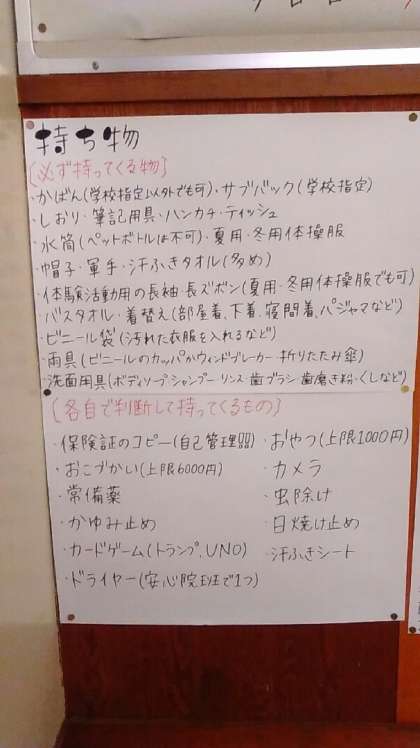 持ち物
[必ず持ってくる物]
・かばん(学校指定以外でも可)・サブバック(学校指定)
・しおり・筆記用具・ハンカチ・ティッシュ
・水筒(ペットボトルは不可)・夏用・冬用体操服
・帽子・軍手・汗ふきタオル(多め)
・体験活動用の長袖長ズボン(夏用・冬用体操服でも可)
・バスタオル・着替え(部屋着、下着、寝間着、パジャマなど)
・ビニール袋(汚れた衣服を入れるなど)
・雨具(ビニールのカッパかウィンドブレーカー・折りたたみ傘)
・洗面用具(ボディソープ シャンプー リンス・歯ブラシ 歯磨き粉・くしなど)
[各自で判断して持ってくるもの]
・保険証のコピー(自己管理!!)
・おこづかい(上限6000円)
・常備薬
・かゆみ止め
・カードゲーム(トランプ、UNO)
・ドライヤー(安心院班で1つ)
・おやつ(上限1000円)
・カメラ
・虫除け
・日焼け止め
・汗ふきシート